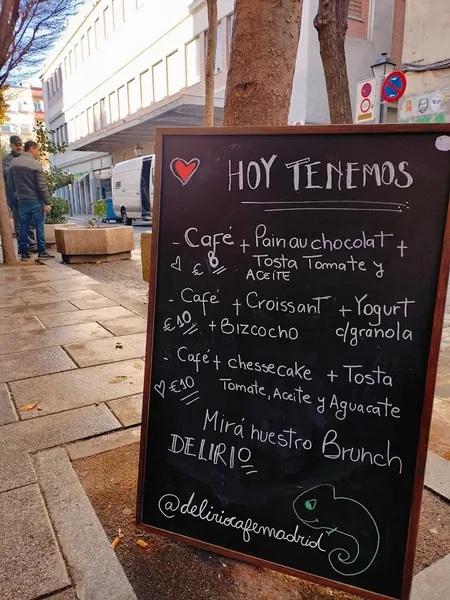 HOY TENEMOS
- Café + Pain au chocolat +
€ 8 Tosta Tomate y
ACEITE
- Café + Croissant + Yogurt
€10 + Bizcocho c/granola
- Café + chessecake + Tosta
€10 Tomate, Aceite y Aguacate
Mirá nuestro Brunch
DELIRIO
@deliriocafemadrid